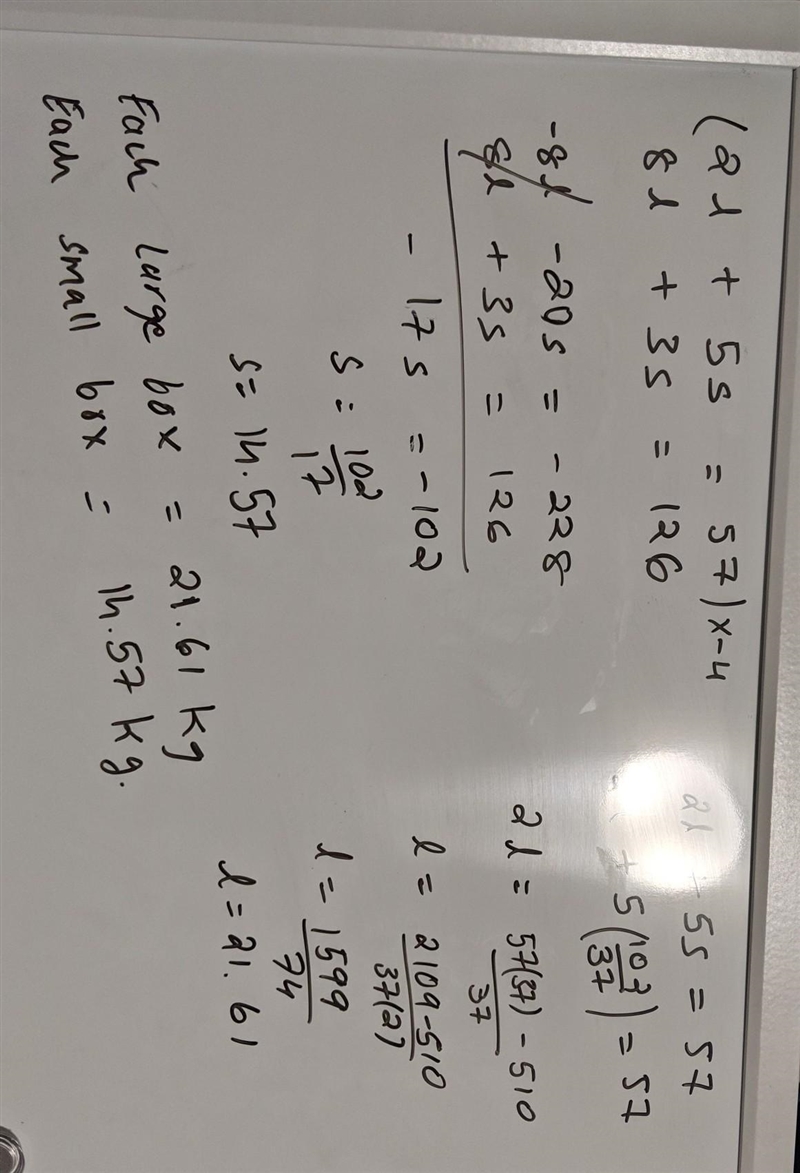 (2l + 5s = 57) x-4
8l + 3s = 126
-8l -20s = -228
8l + 3s = 126
- 17s = -102
s = 102/17
s = 14.57
Each large box = 21.61 kg
Each small box = 14.57 kg.
2l + 5s = 57
+ 5(102/37) = 57
2l = 57(37) - 510/37
l = 2109-510/37(2)
l = 1599/74
l = 21.61